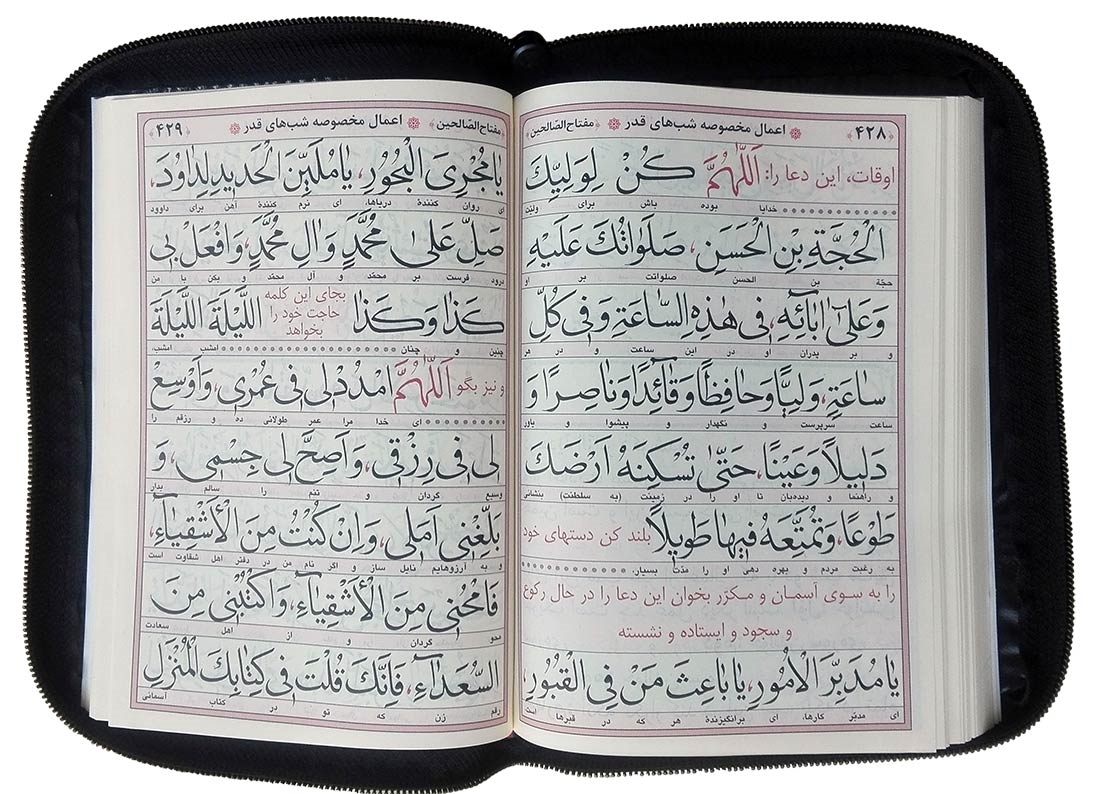 ﴿۴۲۸﴾ اعمال مخصوصه شب‌های قدر ﴿مفتاح‌الصّالحین﴾
اوقات، این دعا را: اَللّٰهُمَّ كُنْ لِوَلِيِّكَ
خدایا بوده باش برای ولیّت
الْحُجَّةِ بْنِ الْحَسَنِ، صَلَوٰاتُكَ عَلَيْهِ
حجّة بن الحسن صلواتت بر او
وَعَلىٰ اٰبٰائِهِ، فى هٰذِهِ السّٰاعَةِ وَفى كُلِّ
و بر پدران او در این ساعت و در هر
سٰاعَةٍ، وَلِيًّا وَحٰافِظًا وَقٰائِدًا وَنٰاصِرًا وَ
ساعت سرپرست و نگهدار و پیشوا و یاور
دَلِيلاً وَعَيْنًا، حَتّىٰ تُسْكِنَهُ اَرْضَكَ
و راهنما و دیده‌بان تا او را در زمینت (به سلطنت) بنشانی
طَوْعًا، وَتُمَتِّعَهُ فيهٰا طَويلاً بلند کن دستهای خود
به رغبت مردم و بهره دهی او را مدّت بسیار.
را به سوی آسمان و مکرّر بخوان این دعا را در حال رکوع
و سجود و ایستاده و نشسته
يٰا مُدَبِّرَ الْاُمُورِ، يٰا بٰاعِثَ مَنْ فِى الْقُبُورِ،
ای مدبّر کارها، ای برانگیزندهٔ هر که در قبرها است
﴿مفتاح‌الصّالحین﴾ اعمال مخصوصه شب‌های قدر ﴿۴۲۹﴾
يٰا مُجْرِىَ الْبُحُورِ، يٰا مُلَيِّنَ الْحَديدِ لِدٰاوُدَ،
ای روان کنندهٔ دریاها، ای نرم کنندهٔ آهن برای داوود
صَلِّ عَلىٰ مُحَمَّدٍ وَاٰلِ مُحَمَّدٍ، وَافْعَلْ بى
درود فرست بر محمّد و آل محمّد و بکن با من
كَذٰا وَكَذٰا بجای این کلمه حاجت خود را بخواهد اللَّيْلَةَ اللَّيْلَةَ
چنین و چنان امشب امشب.
و نیز بگو اَللّٰهُمَّ امْدُدْ لى فى عُمْرى، وَاَوْسِعْ
ای خدا مرا عمر طولانی ده و رزقم را
لى فى رِزْقى، وَاَصِحَّ لى جِسْمى، وَ
وسیع گردان و تنم را سالم بدار
بَلِّغْنى اَمَلى، وَاِنْ كُنْتُ مِنَ الْاَشْقِيٰاءِ،
و به آرزوهایم نایل ساز و اگر نام من در دفتر اهل شقاوت است
فَامْحُنى مِنَ الْاَشْقِيٰاءِ، وَاكْتُبْنى مِنَ
محو گردان و از اهل سعادت
السُّعَدٰاءِ، فَاِنَّكَ قُلْتَ فى كِتٰابِكَ الْمُنْزَلِ
رقم زن که تو در کتاب آسمانی